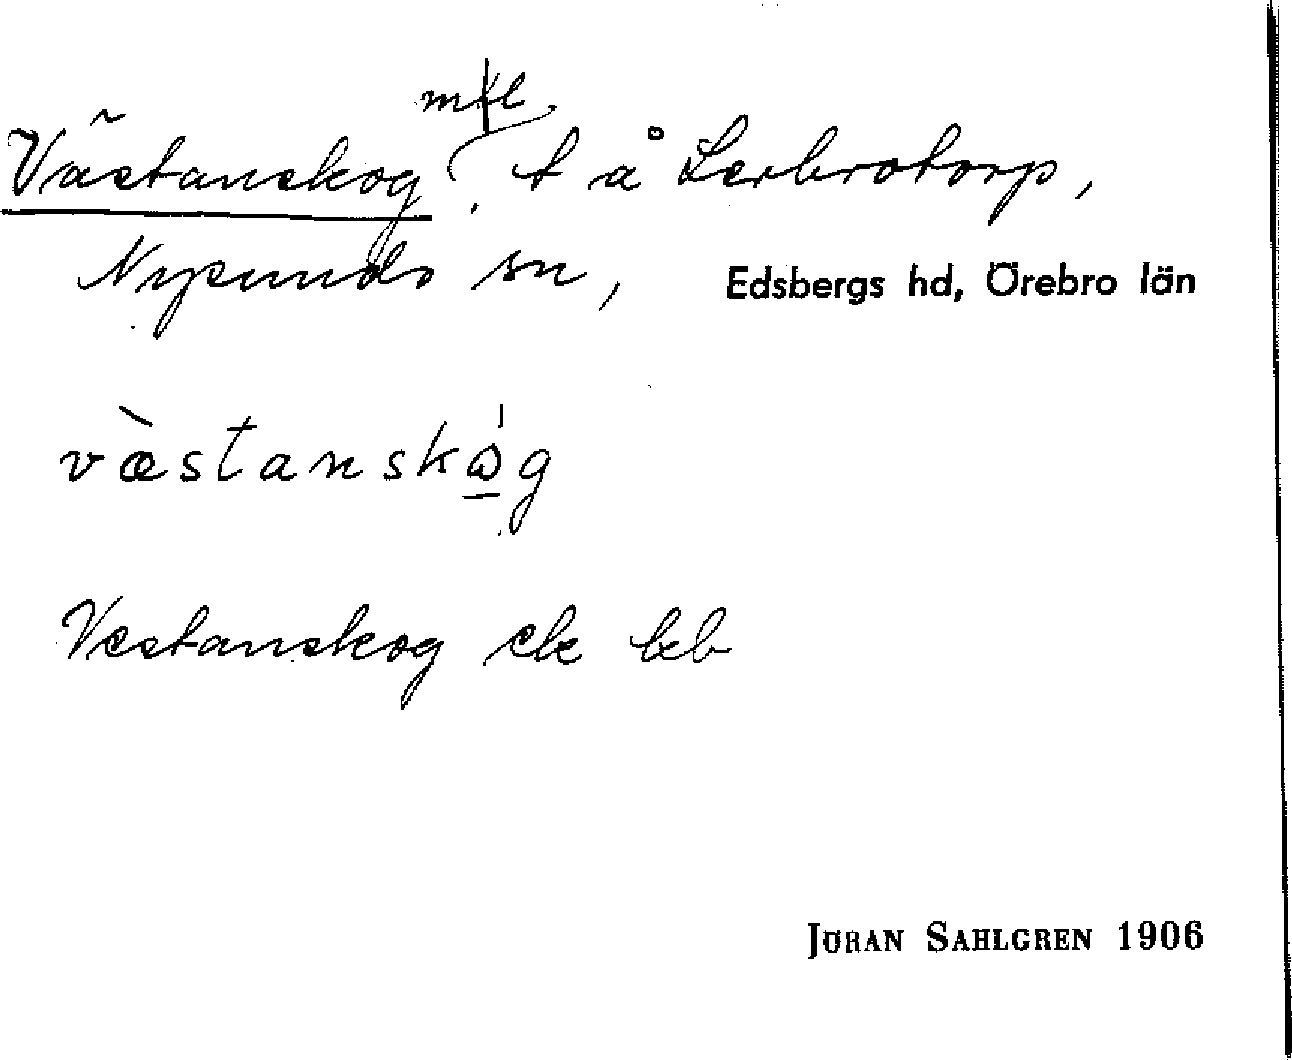 Västanskog, t å Lerbrotorp,
Nysunds sn, Edsbergs hd, Örebro län
væ̀stanskώ̲g
Vestanskog ek kb
JÖRAN SAHLGREN 1906